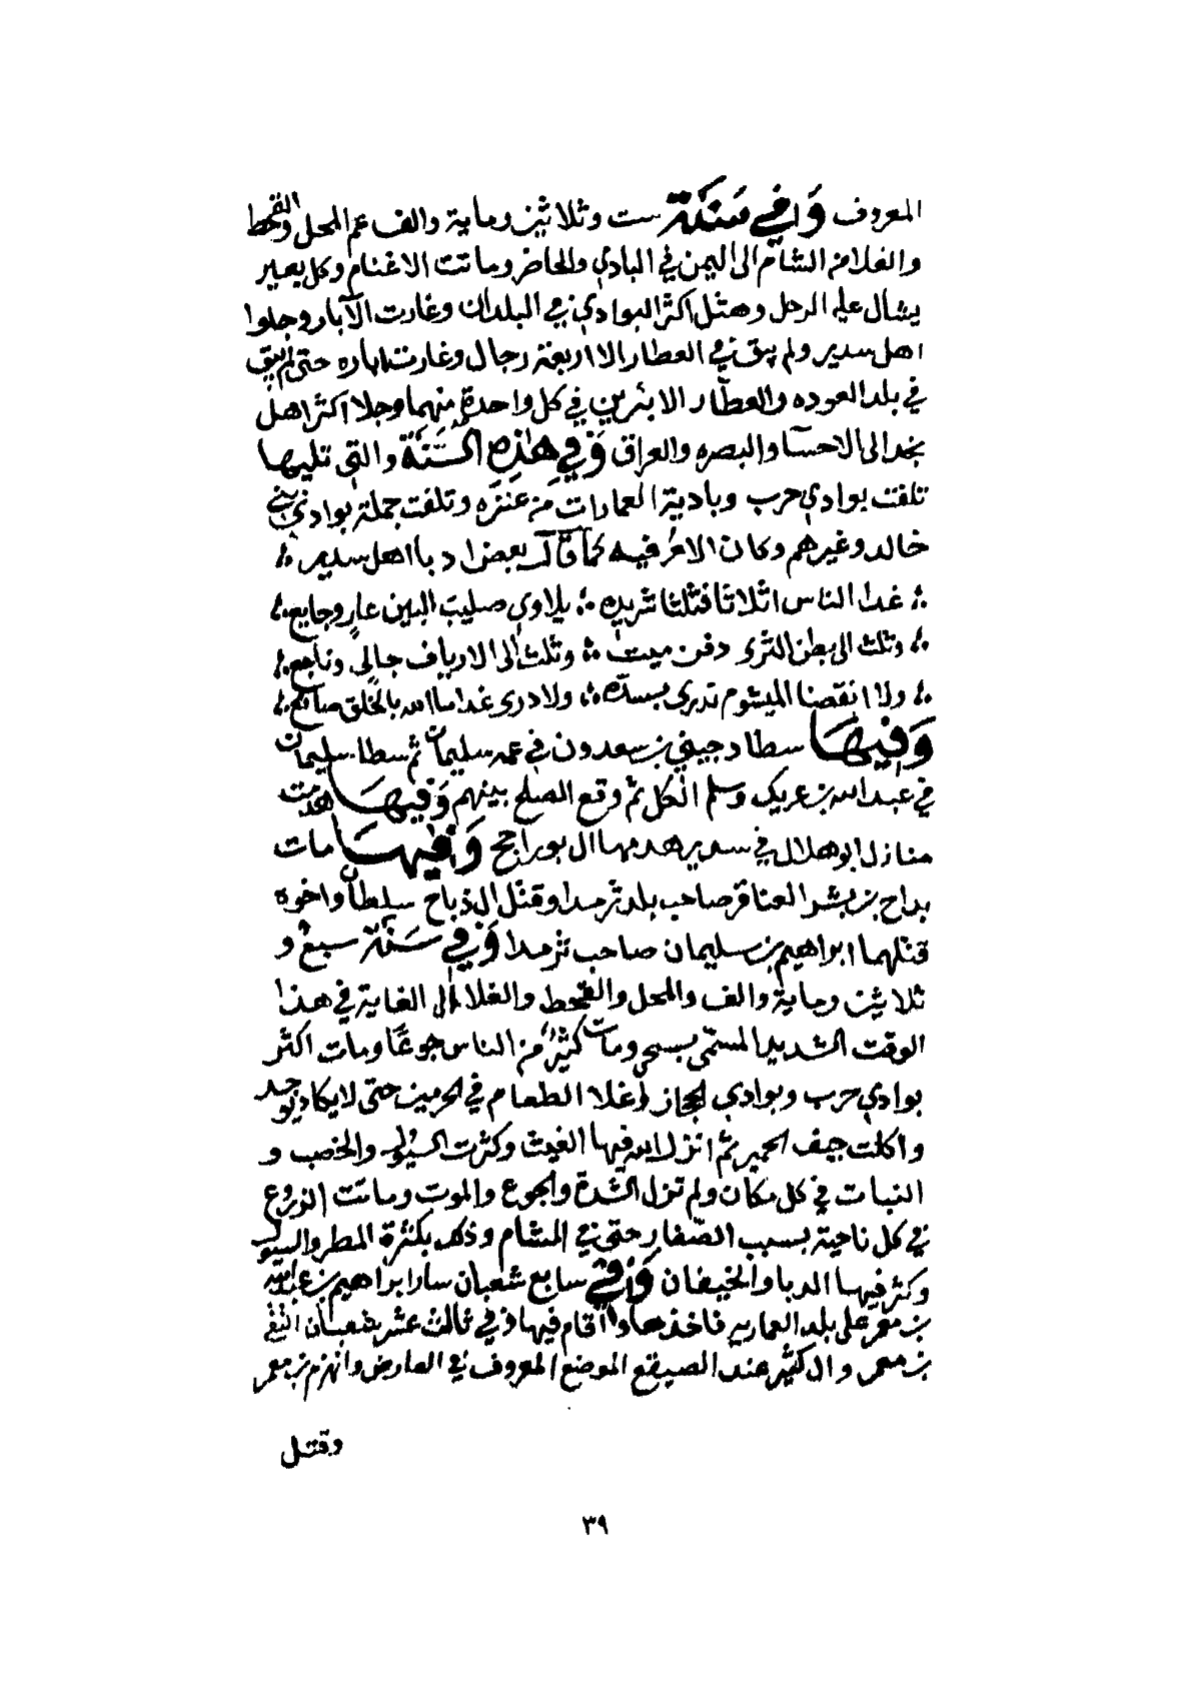 المعروف وَفي سَنَة ست وثلاثين وماية والف عم المحل والقحط
والغلا من الشام الى اليمن في البادي والحاضر وماتت الاغنام وكل بعير
يشال عليه الرحل وهتل اكثر البوادي في البلدان وغارت الآبار وجلوا
اهل سدير ولم يبق في العطار الا اربعة رجال وغارت اباره حتى لم يبق
في بلد العوده والعطار الا بئرين في كل واحدة منهما وجلا اكثر اهل
نجد الى الاحسا والبصره والعراق وَفي هٰذِهِ السَّنَة والتي تليها
تلفت بوادي حرب وبادية العمارات من عنزه وتلفت جملة بوادي بني
خالد وغيرهم وكان الامر فيه كما قال بعض ادبا اهل سدير
غدا الناس اثلاثا فثلثا شريده يلاوي صليب البين عارٍ وجايع
وثلث الى بطن الثرى دفن ميت وثلث الى الارياف جالي وناجع
ولا انقضا الميشوم تدرى بسده ولا درى غدا ما الله بالخلق صانع
وَفِيهَا سطا دجيني بن سعدون في عمه سليمان ثم سطا سليمان
في عبدالله بن عريك وسلم الكل ثم وقع الصلح بينهم وَفيهَا هدمت
منازل ابو هلال في سدير هدمها ال بو راجح وَفيهَا مات
بداح بن بشر العناقر صاحب بلد ثرمدا وقتل ال ذباح سلطان واخوه
قتلهما ابراهيم بن سليمان صاحب ثرمدا وَفي سَنَة سبع و
ثلاثين وماية والف والمحل والقحط والغلا الى الغاية في هذا
الوقت الشديد المسمى بسحي ومات كثير من الناس جوعًا ومات اكثر
بوادي حرب وبوادي الحجاز وغلا الطعام في الحرمين حتى لا يكاد يوجد
واكلت جيف الحمير ثم انزل الله فيها الغيث وكثرت السيول والخصب و
النبات في كل مكان ولم تزل الشدة والجوع والموت وماتت الزروع
في كل ناحية بسبب الصفار حتى في الشام وذلك بكثرة المطر والسيول
وكثر فيها الدبا والخيفان وَفي سابع شعبان سار ابراهيم بن عبدالله
بن معمر على بلد العماريه فاخذها واقام فيها وفي ثالث عشر شعبان التقى
بن معمر وال كثير عند الصيقع الموضع المعروف في العارض وانهزم بن معمر
وقتل
٣٩